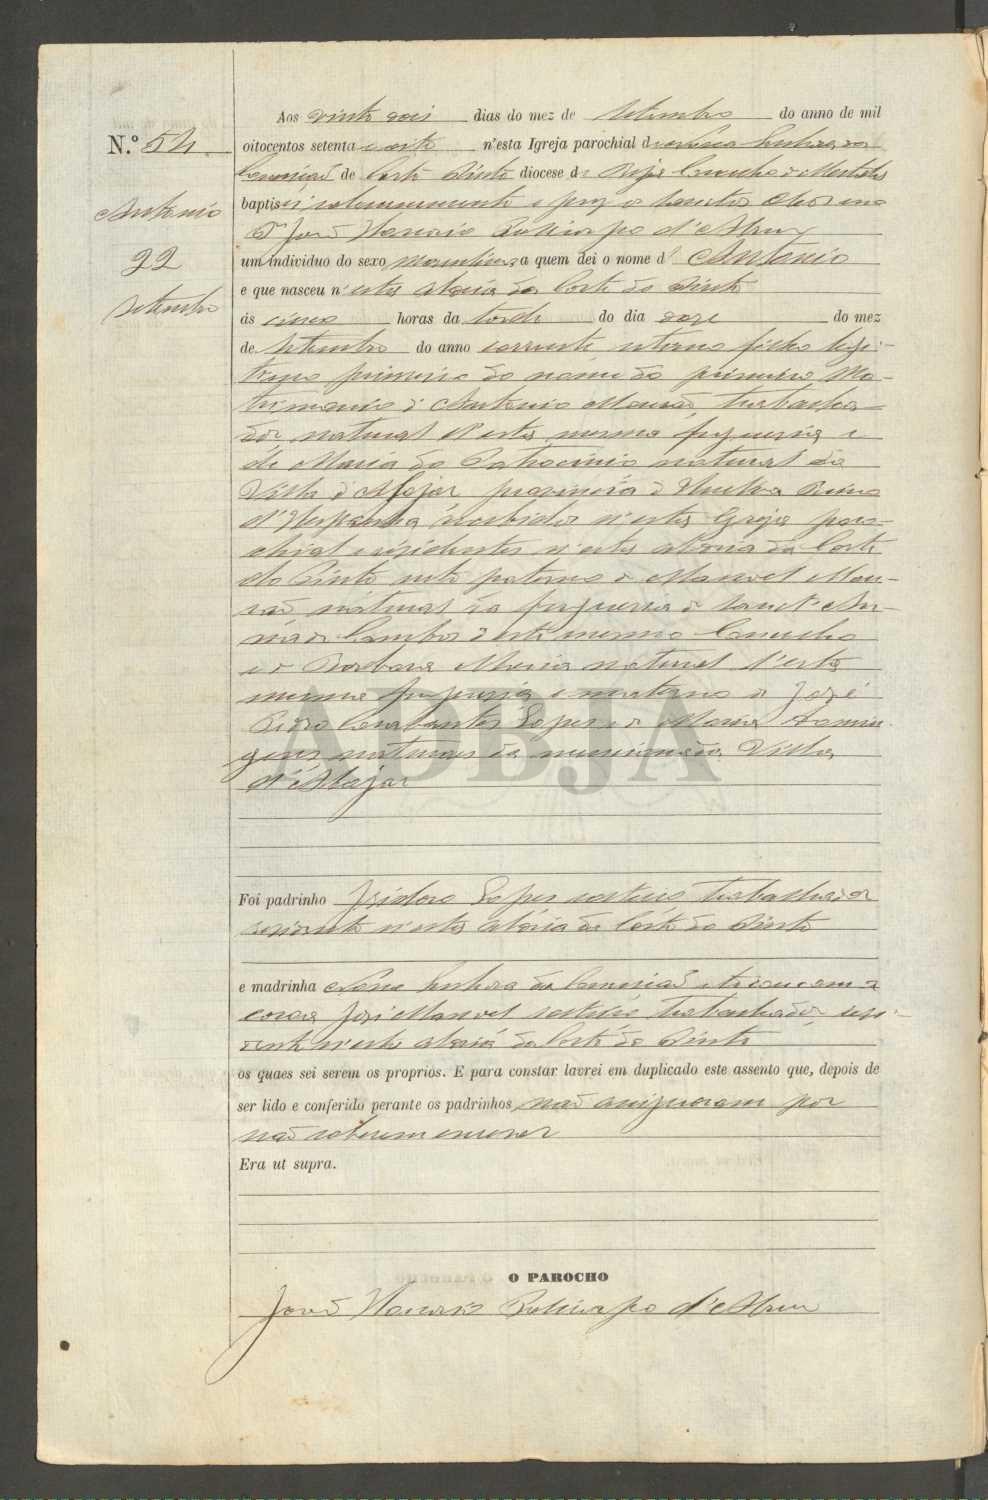 N.º 54
Antonio
22
Setembro
Aos vinte dois dias do mez de Setembro do anno de mil
oitocentos setenta e oito n'esta Igreja parochial de Nossa Senhora da
Conceição de Corte Pinto diocese de Beja Concelho de Mertola
baptisei solemnemente e puz os Sanctos Oleos eu
João Honorio Policarpo d'Abreu
um individuo do sexo masculino a quem dei o nome d' Antonio
e que nasceu n'esta Aldeia da Corte do Pinto
ás cinco horas da tarde do dia doze do mez
de Setembro do anno corrente filho legi-
timo primeiro do nome do primeiro Ma-
trimonio d'Antonio Mourão, trabalha-
dor natural d'esta mesma freguesia e
de Maria do Patrocinio natural da
Villa d'Alajar provincia d'Huelva Reino
d'Hespanha recebidos n'esta Igreja paro-
chial e residentes n'esta aldeia da Corte
do Pinto neto paterno de Manoel Mou-
rão natural da freguesia de Sanct'An-
na de Cambas d'este mesmo Concelho
e de Barbara Maria natural d'esta
mesma freguesia e materno de José
Pedro Lopes e de Maria Domin-
gues naturaes da mencionada Villa
d'Alajar
AOBJA
Foi padrinho Isidoro Lopes solteiro trabalhador
residente n'esta aldeia da Corte do Pinto
e madrinha Nossa Senhora da Conceição e tocou com a
coroa José Manoel solteiro trabalhador, resi-
dente n'esta aldeia da Corte do Pinto
os quaes sei serem os proprios. E para constar lavrei em duplicado este assento que, depois de
ser lido e conferido perante os padrinhos não assignaram por
não saberem escrever
Era ut supra.
O PAROCHO
João Honorio Policarpo d'Abreu